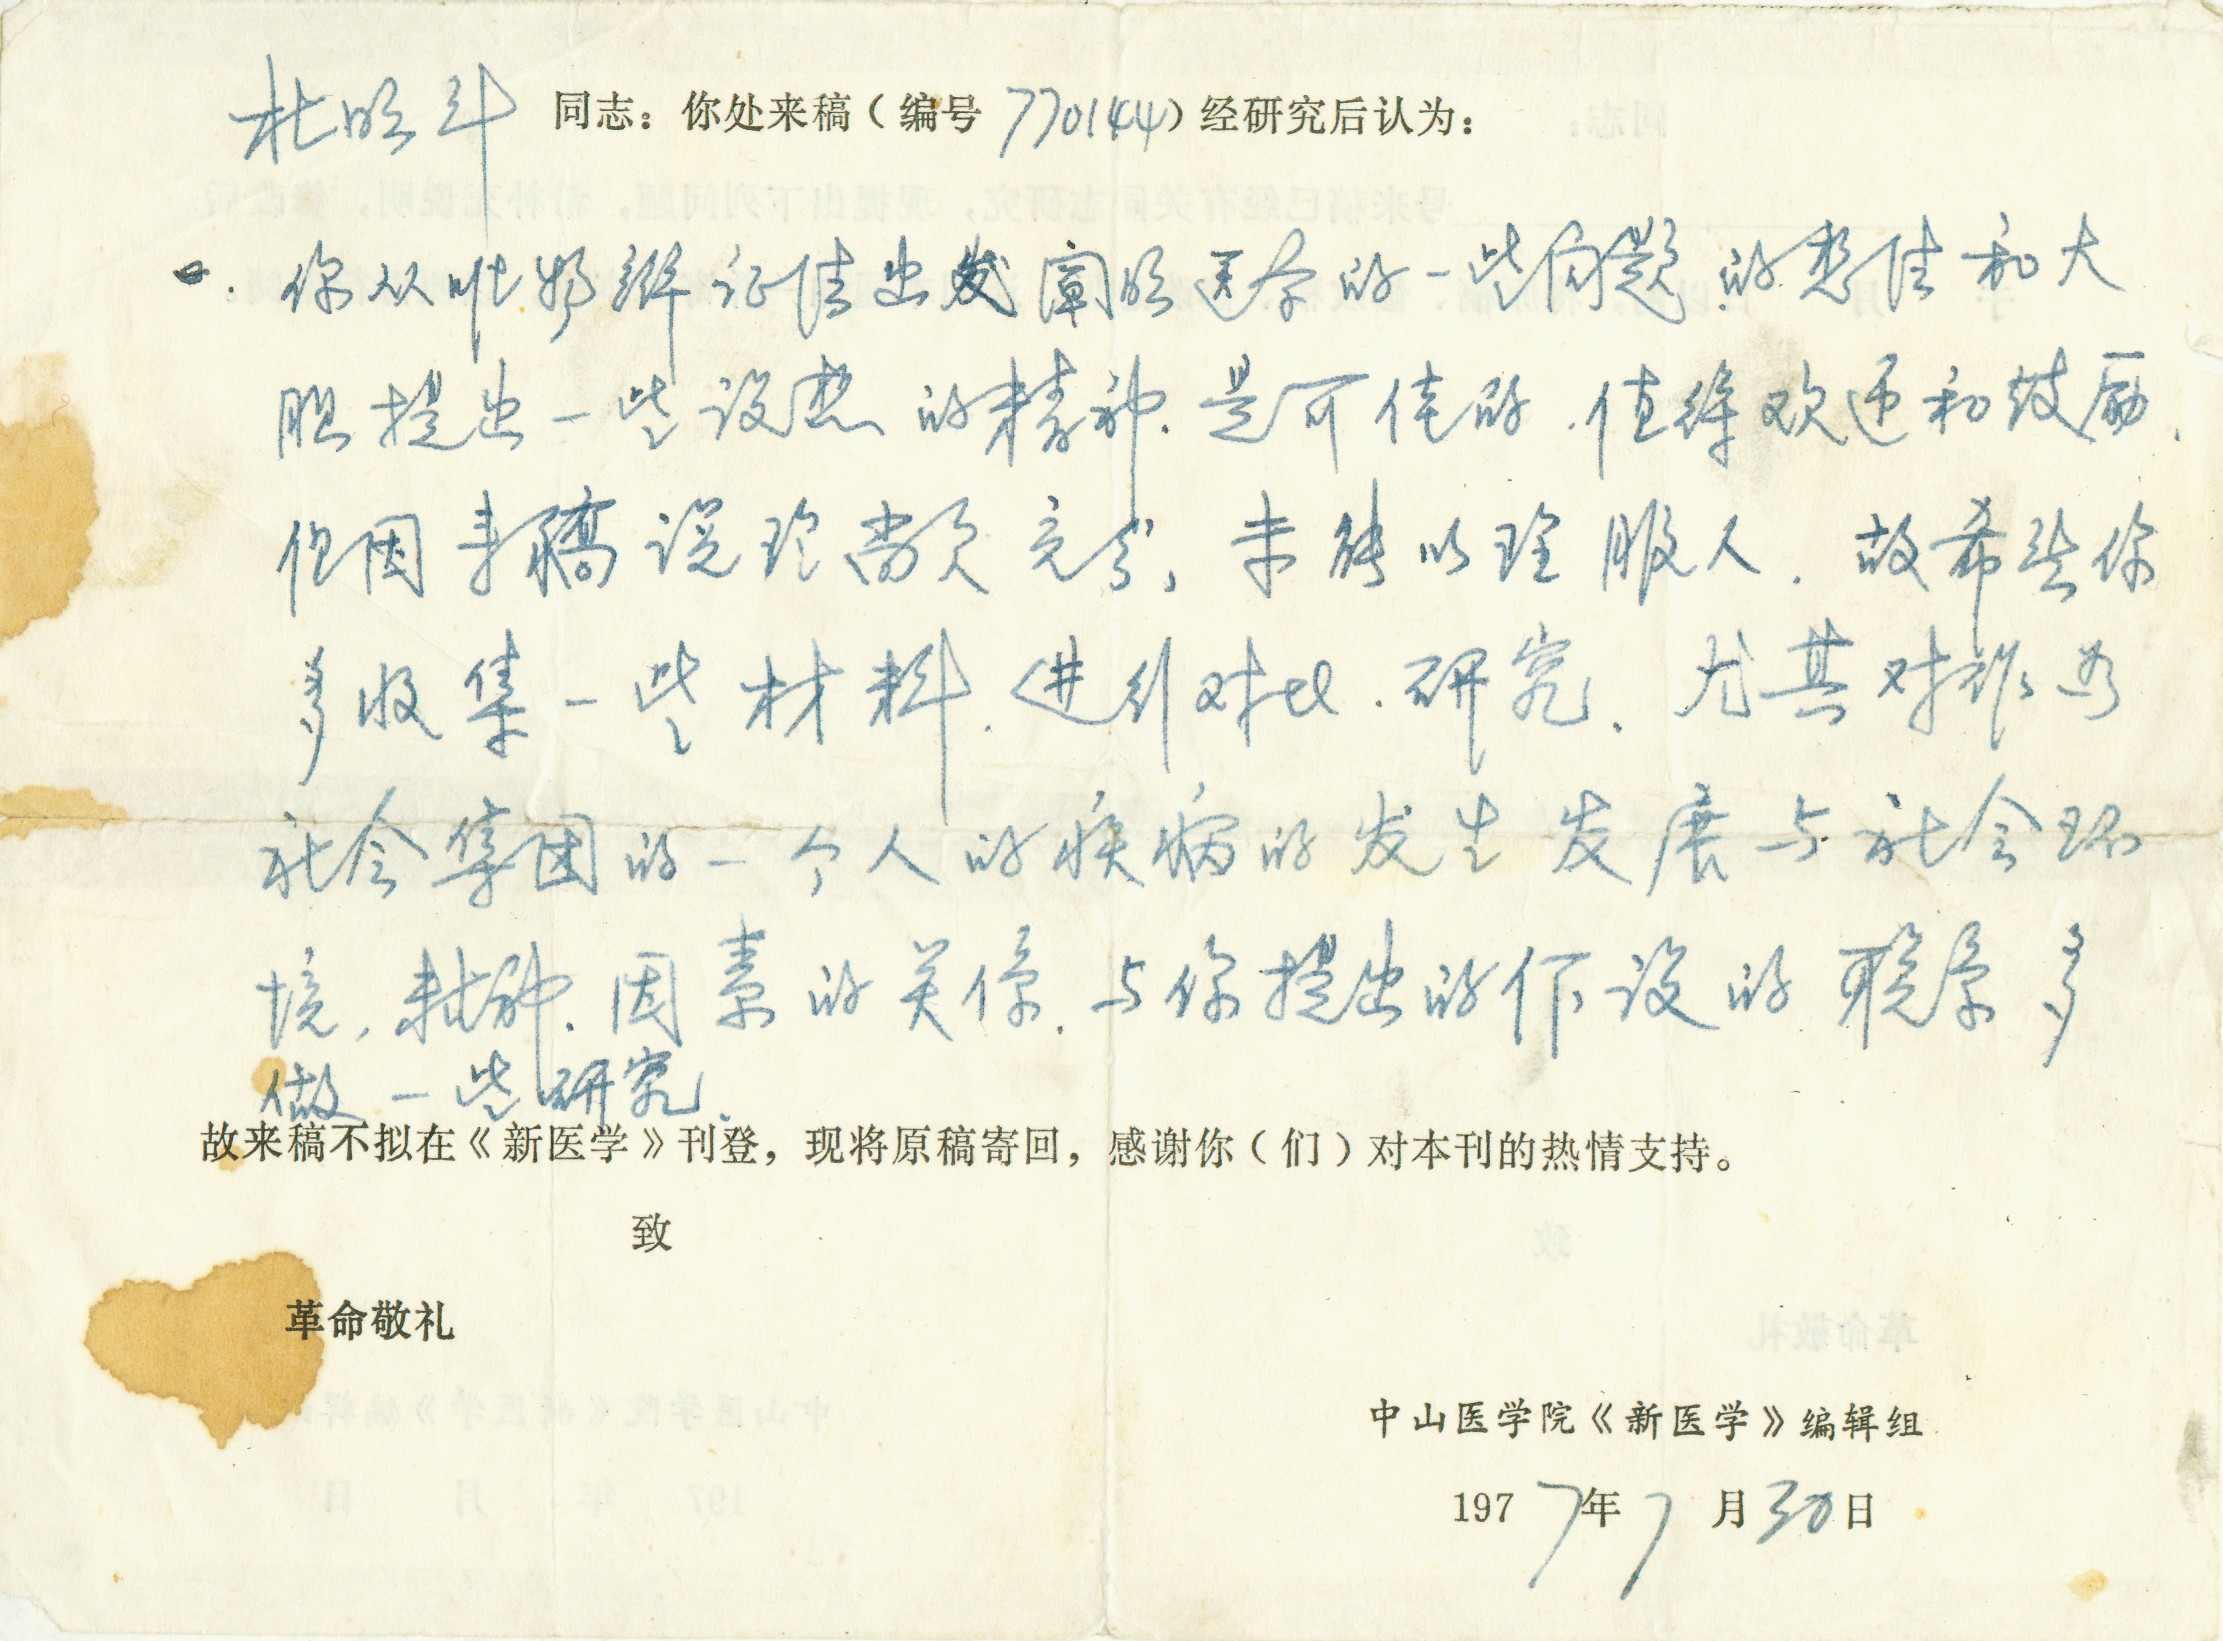 杜明斗 同志：你处来稿（编号 770144）经研究后认为：
你从唯物辩证法出发阐明医学的一些问题的想法和大
胆提出一些设想的精神.是可佳的.值得欢迎和鼓励.
但因来稿说理尚欠充分,未能以理服人.故希望你
多收集一些材料.进行对比.研究.尤其对作为
社会集团的一个人的疾病的发生发展与社会环
境,精神.因素的关系.与你提出的假设的联系多
做一些研究.
故来稿不拟在《新医学》刊登，现将原稿寄回，感谢你（们）对本刊的热情支持。
致
革命敬礼
中山医学院《新医学》编辑组
1977年7月30日